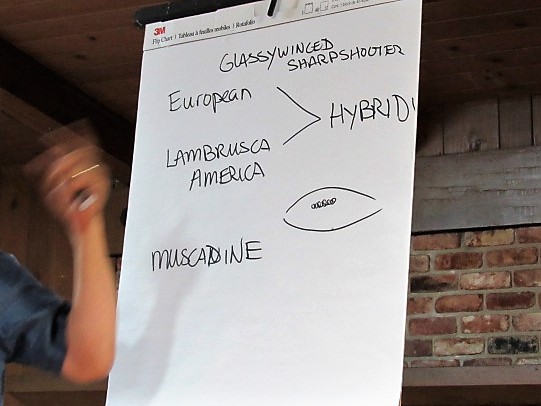 3M
Flip Chart | Tableau à feuilles mobiles | Rotafolio
GLASSYWINGED
SHARPSHOOTER
European
HYBRID
LAMBRUSCA
AMERICA
MUSCADINE